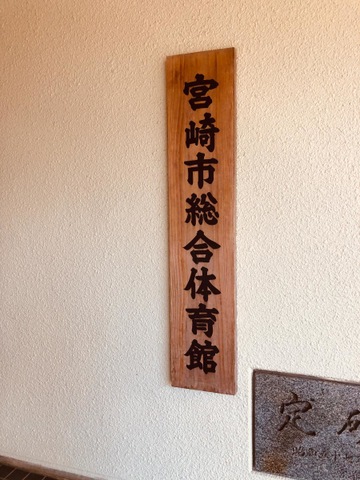 宮崎市総合体育館
定